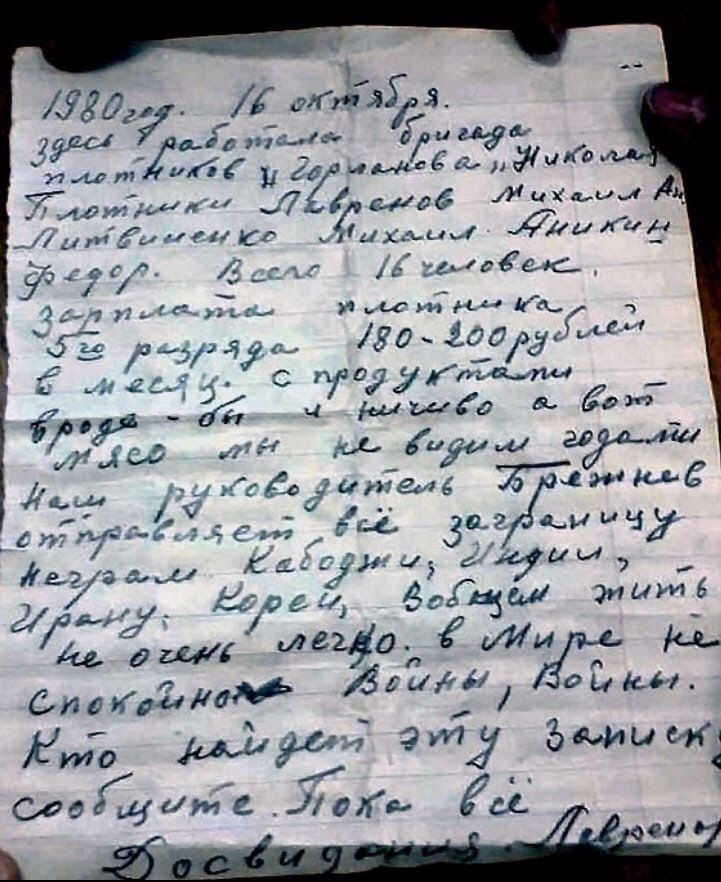 1980 год. 16 октября.
здесь работала бригада
плотников „Горланова„ Николая
Плотники Лавренов Михаил Ан
Литвиненко Михаил. Аникин
Федор. Всего 16 человек.
зарплата плотника
5го разряда 180-200 рублей
в месяц. с продуктами
вроде-бы и ничиво а вот
мясо мы не видим годами
наш руководитель Брежнев
отправляет всё заграницу
неграм Кабоджи, Индии,
Ирану, Кореи, Вобщем жить
не очень легко. в Мире не
спокойно Войны, Войны.
Кто найдет эту записку
сообщите. Пока всё
Досвидания Лавренов